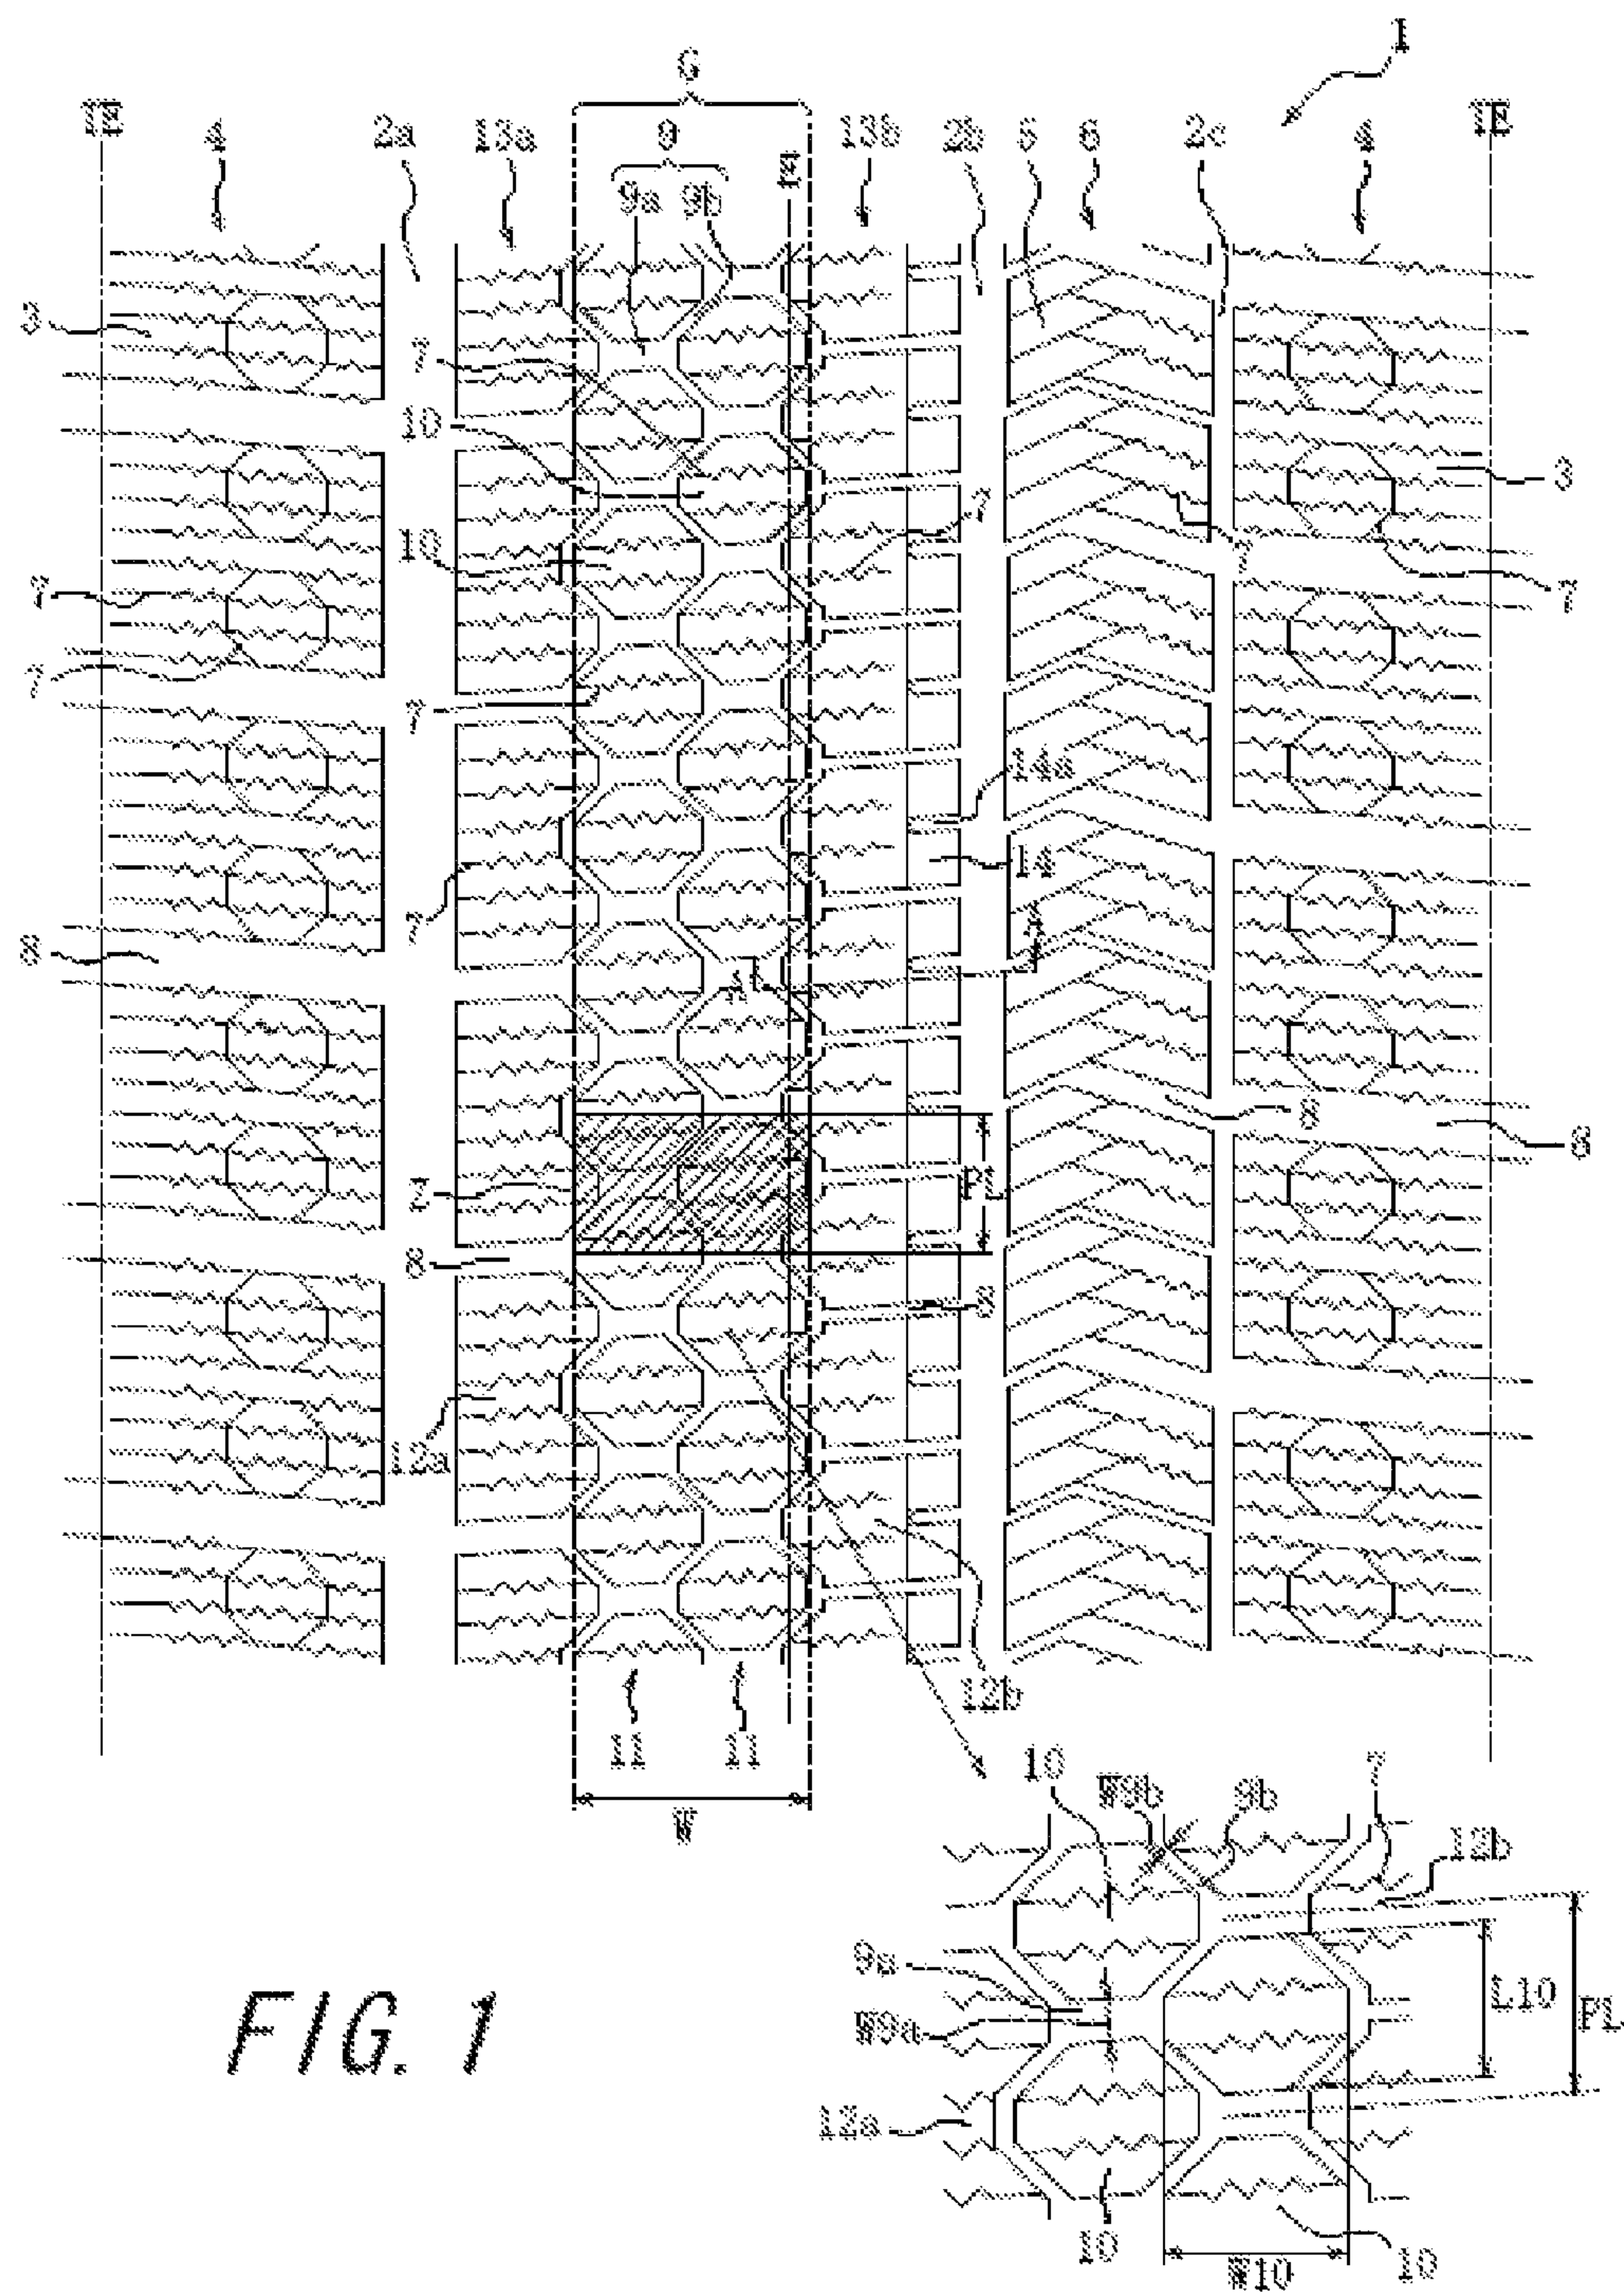 1
G
TE 4 2a 13a 9 13b 2b 5 6 2c 4 TE
9a 9b E
3
7
10
3
7
10
7
7
7
7
7
14a
14
7
8
A
8
8
Z
P1
8
8
12a
12b
11 11
W
10 W9b 9b 7
12b
9a
W9a
L10
PL
12a
10 W10 10
FIG. 1